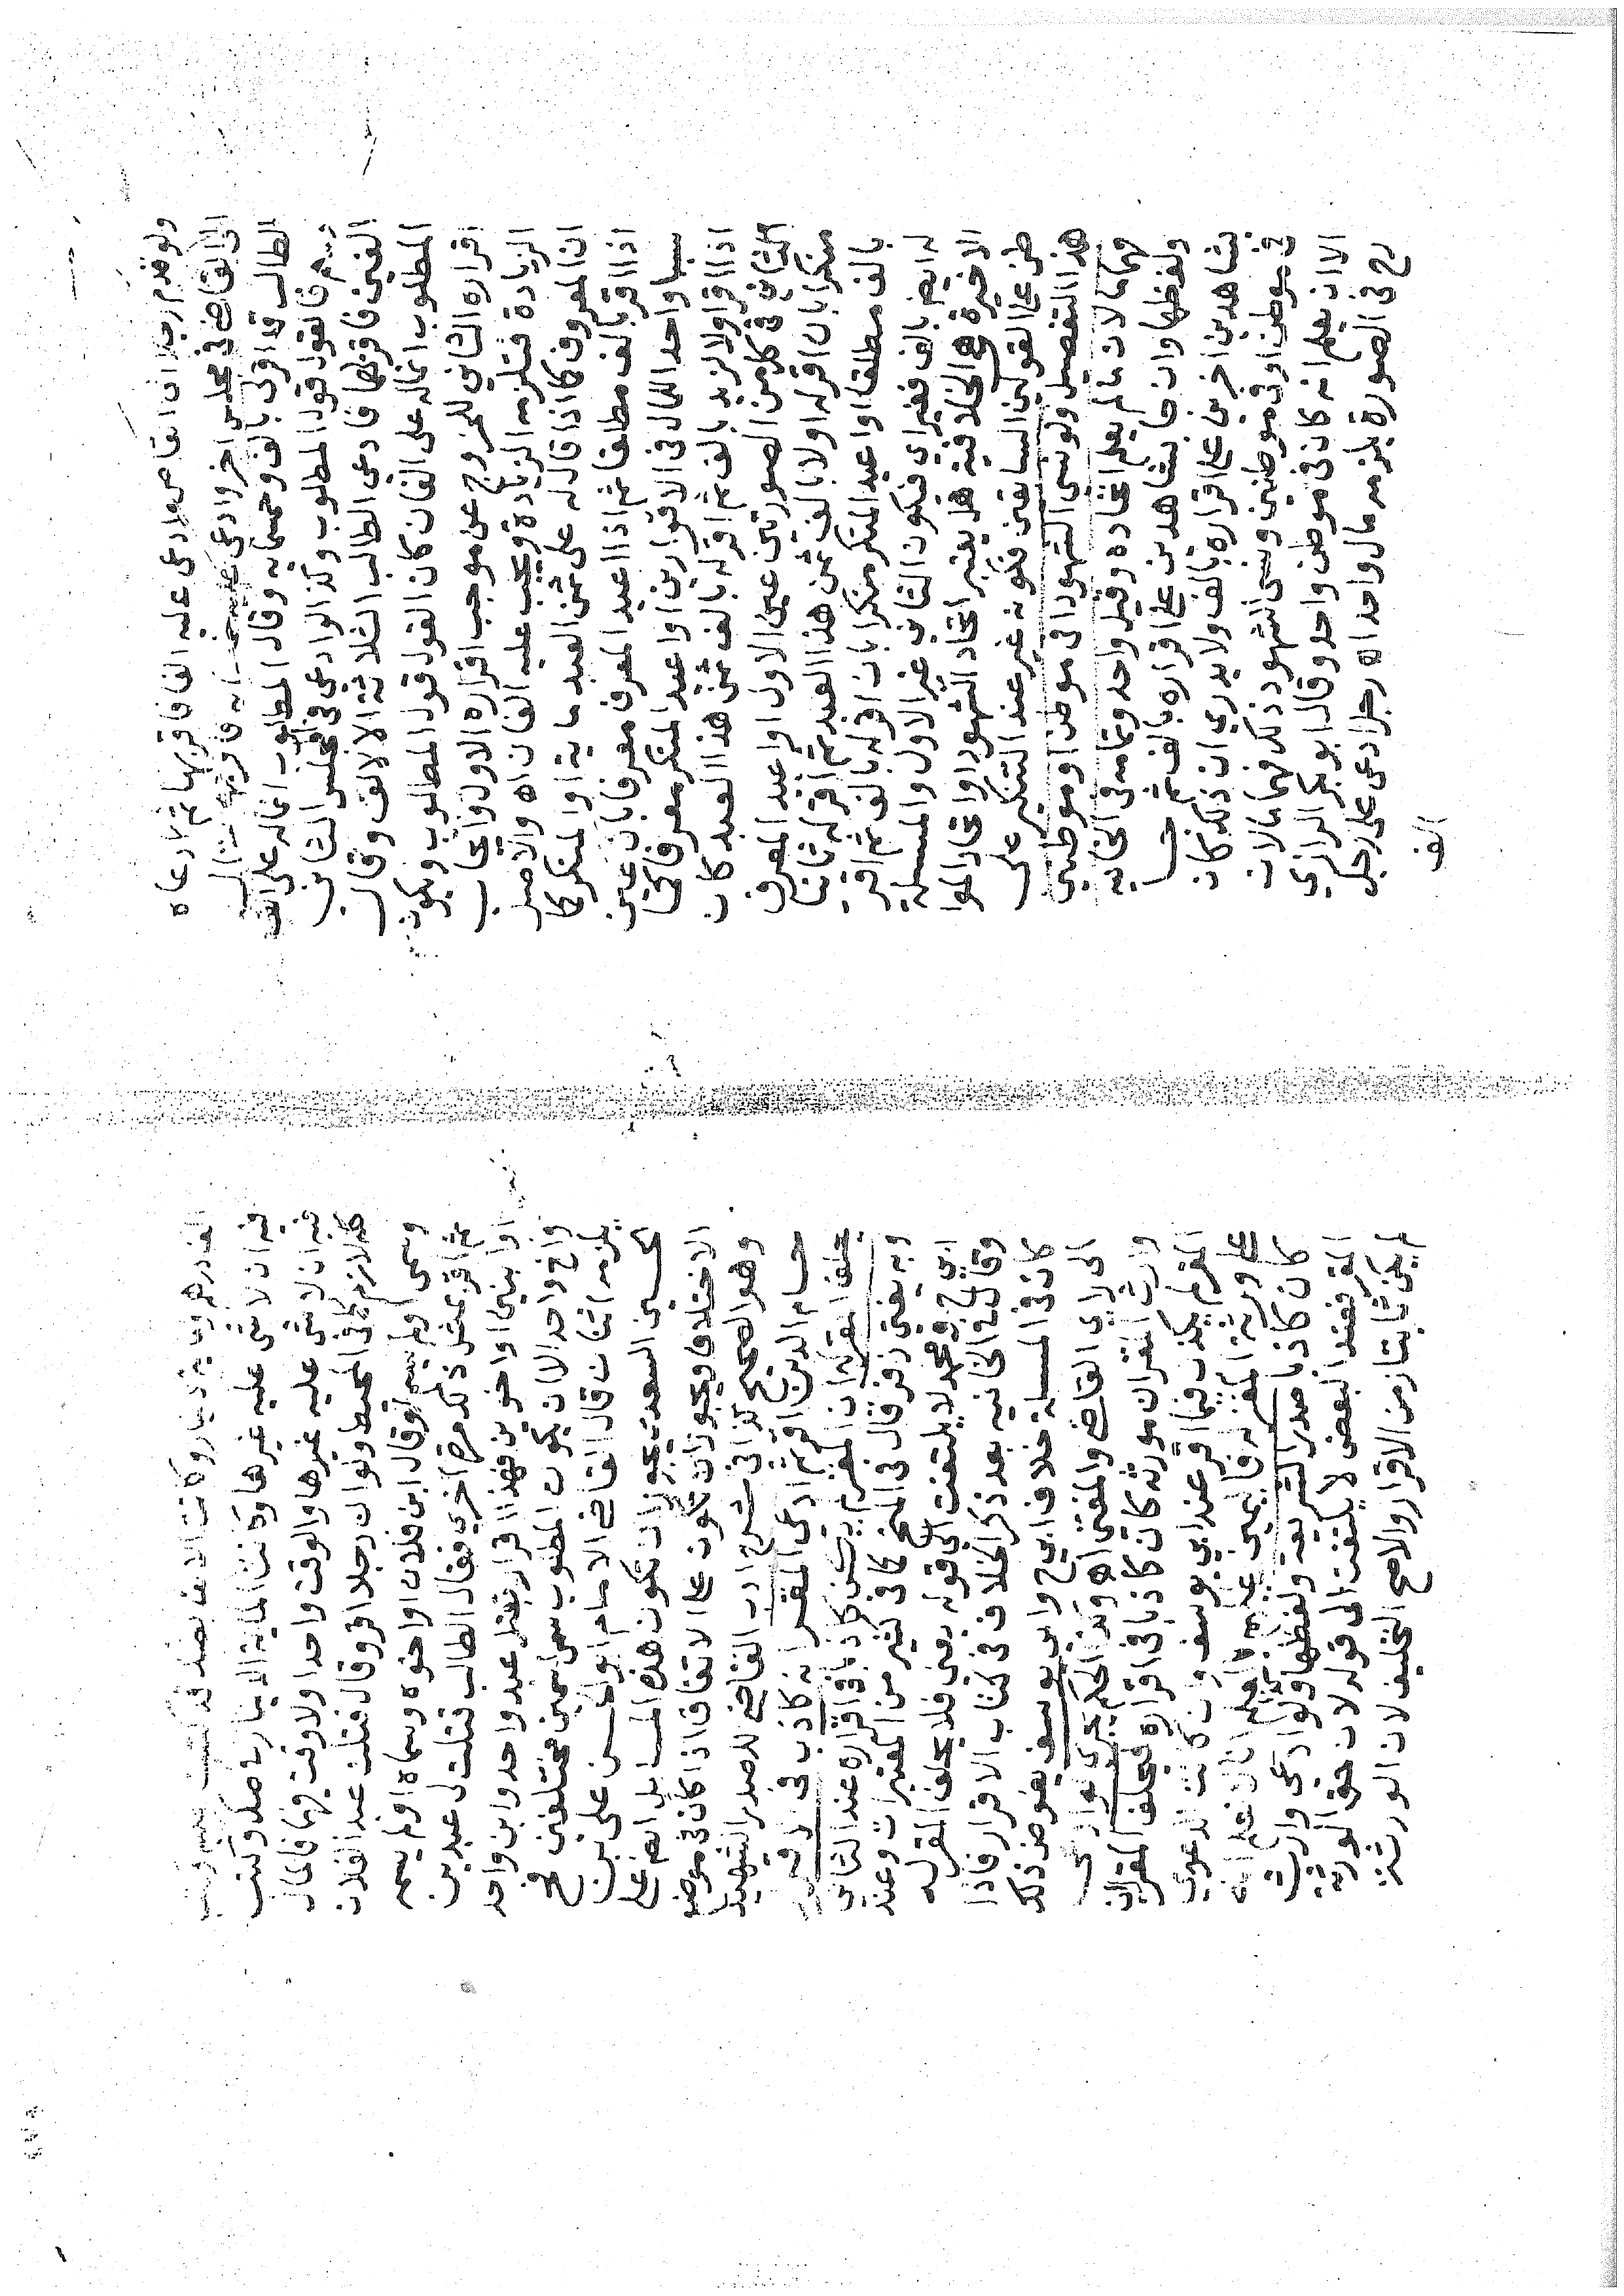 ولو قدم رجلا القاضي وادعى عليه الفا فاقر بها ثم ادعاه
الى القاضي في مجلس اخر وادعى فاقر بها
الطالب قد اقر لي بالف وخمسمايه وقال المطلوب انما له علي
فالقول قول المطلوب وكذا لو ادعى في المجلس الثاني
الفين فاقر بها فادعى الطالب الثلاثة الالاف وقال
المطلوب انما له علي الفان كان القول قول المطلوب ويكون
اقراره الثاني للخروج عن موجب اقراره الاول وايجاب
الزيادة فتلزمه الزيادة ويجب عليه الفان اه والاصل
ان المعروف كما اذا قال له علي ثمن العبد ماية او المنكر كما
اذا اقر بالف مطلقا ثم اذا اعيد المعرف معرفا بان عين
سببا واحدا للمال في الاقرارين او اعيد المنكر معرفا كما
اذا اقر اولا لزيد بالف ثم اقر له بالف ثمن هذا العبد كان
الثاني في كل من الصورتين عين الاول او اعيد المعرف
منكرا بان اقر له اولا بالف ثمن هذا العبد ثم اقر له ثانيا
بالف مطلقا او اعيد المنكر منكرا بان اقر له بالف ثم اقر
له ايضا بالف فغير اي فيكون الثاني غير الاول والمسئلة
الاخيرة هي الخلافية هل يعتبر اتحاد الشهود او اتحاد الموا
طن على القولين السابقين فكونه غير عند التنكير على
هذا التفصيل ولو نسي الشهود افي موطن او موطنين
فهما مالان ما لم يعلم اتحاده وقيل واحد وتمامه في الخانيه
ولفظها وان جا بشاهدين على اقراره بالف ثم جا
بشاهدين اخرين على اقراره بالف ولا يدري ان ذلك كان
في موطن او في موطنين ونسي الشهود ذلك فهما مالان
الا ان يعلم انه كان في موطن واحد وقال ابو بكر الرازي
رح في الصورة يلزمه مال واحد اه رجل ادعى على رجل
الف
الف درهم دينار وكانت الالف بصك قد كتب
فيه ان لا شي عليه غيرها وكانت الماية الدينار في صك وكتب
فيه ان لا شي عليه غيرها والوقت واحد او لا وقت فيهما فالمال
كله لازم كما في المحيط ولو ان رجلا اقر وقال قتلت عبدا لفلان
وسمى او لم يسم او قال ابن فلان او اخوه وسماه او لم يسمه
ثم اقر بمثل ذلك مرة اخرى فقال الطالب قتلت لي عبدين
او ابنين او اخوين فهذا اقرار بقتل عبد واحد وابن واحد
واخ واحد الا ان يكون المطلوب سمى اسمين مختلفين فح
يلزمه اثنان قال القاضي الامام ابو الحسن علي بن
الحسين السعدي يجوز ان تكون هذه المسايل ايضا على
الاختلاف ويجوز ان تكون على الاتفاق اذا كان في موضع
وهو الصحيح كذا في شرح ادب القاضي للصدر الشهيد
حسام الدين اقر ثم ادعى المقر انه كاذب في
يحلف المقر له ان المقر لم يكن كاذبا في اقراره عند الثاني
وبه يفتى درر قال في المنح كما في كثير من المعتبرات وعند
ابي ح ومحمد لا يلتفت الى قوله يعني فلا يحلف المقر له
وقال في الخانيه بعد ذكر الخلاف في كتاب الاقرار فاذا
كان في المسئلة خلاف ابي ح وابي يوسف يفوض ذلك
الى راي القاضي والمفتي اه وكذا الحكم يجري لو ادعى
وارث المقر ان مورثه كان كاذبا في اقراره فيحلف المقر له ان
المقر لم يكذب فيما اقر عند ابي يوسف وان كانت الدعوى
على ورثة المقر له فاليمين عليهم بالعلم انا لا نعلم انه
كان كاذبا صدر الشريعة ولفظها ولو ادعى وارث
المقر فعند البعض لا يلتفت الى قوله لان حق الورثة
لم يكن ثابتا زمن الاقرار والاصح التحليف لان الورثة